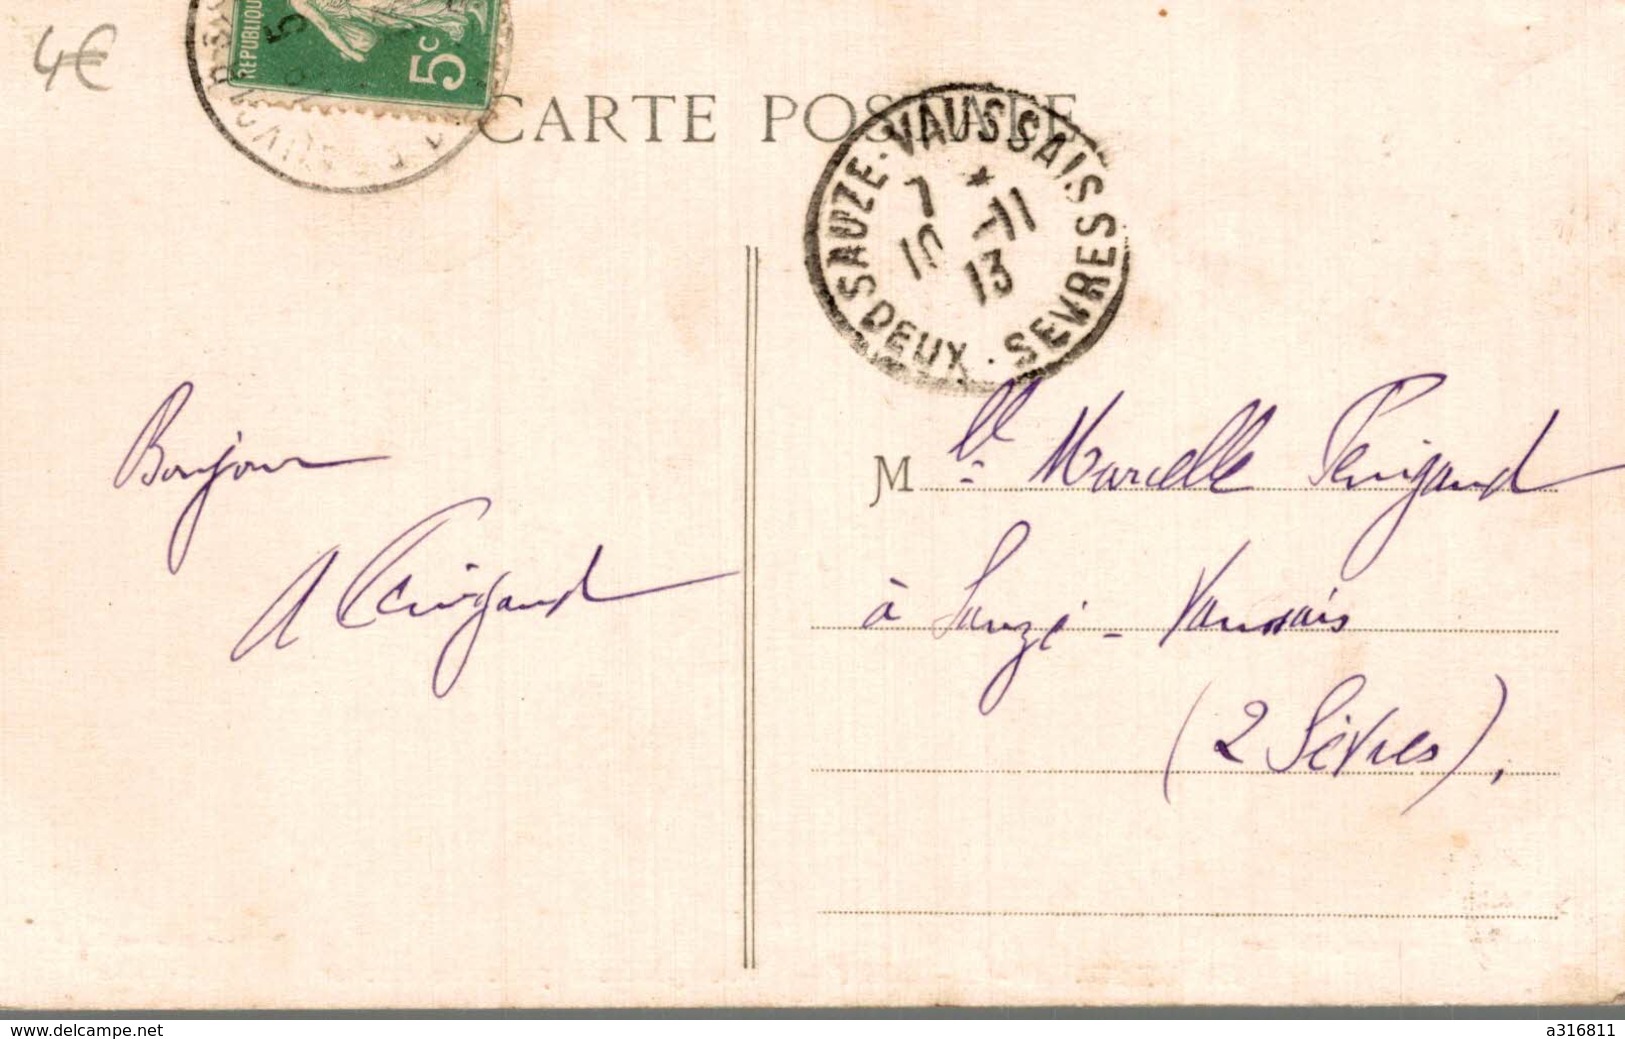 4€
REPUBLIQUE
5c
CARTE POSTALE
SAUZE-VAUSSAIS
7 * -11
10 13
DEUX-SEVRES
Bonjour
A Perrigaud
Mlle Marcelle Perrigaud
à Sauzé-Vaussais
(2 Sèvres).
www.delcampe.net
a316811